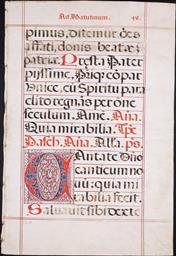 Ad Matutinum. 49.
pimus, Ditemur ōēs
affati, donis beatae
patriæ. Presta Pater
piissime, Patriq; cōpar
Vnice, cū Spiritu para
clito regnās per ōne
seculum. Amē. Aña.
Quia mirabilia. Tpe
Pasch. Aña. Alla. ps.
Cantate Dño
canticum no
vū: quia mi
rabilia fecit.
Salvavit sibi dexte